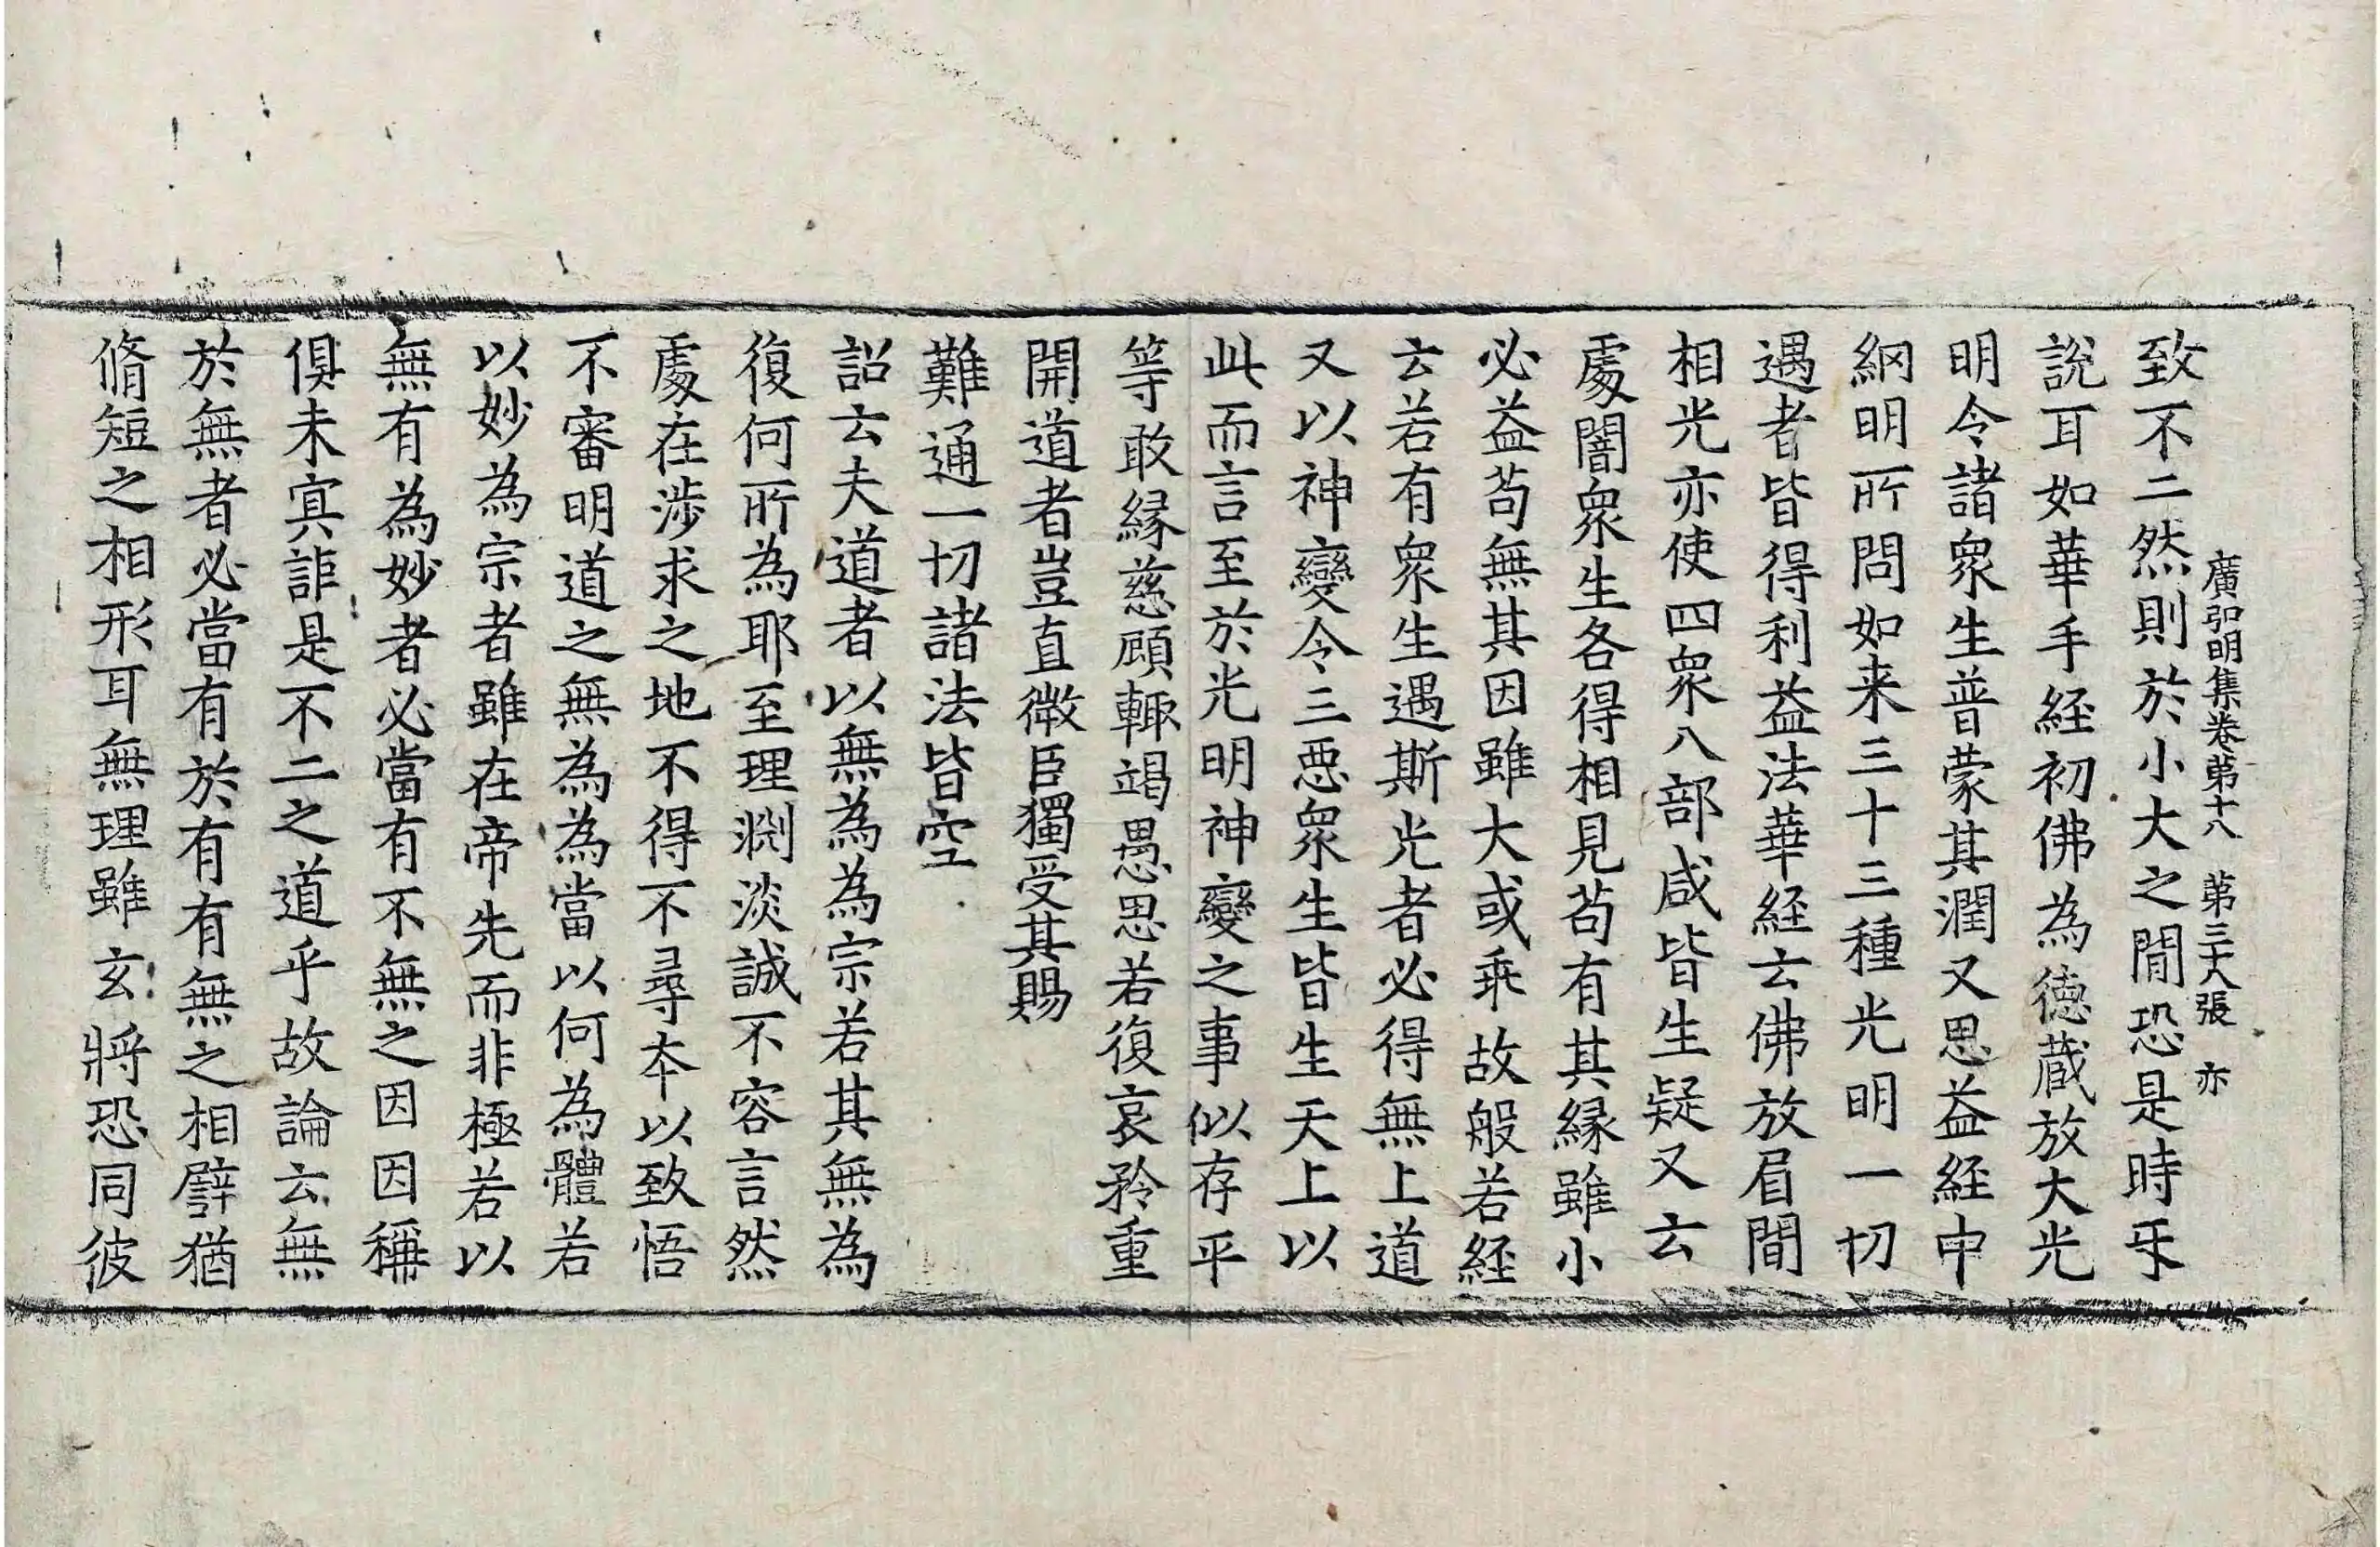 廣弘明集卷苐十八　苐三十八張　亦
致不二然則於小大之間恐是時乎
說耳如華手経初佛為德蔵放大光
明令諸衆生普蒙其潤又思益経中
網明所問如来三十三種光明一切
遇者皆得利益法華経云佛放眉間
相光亦使四衆八部咸皆生疑又云
處闇衆生各得相見苟有其縁雖小
必益苟無其因雖大或乖故般若経
云若有衆生遇斯光者必得無上道
又以神變令三惡衆生皆生天上以
此而言至於光明神變之事似存平
等敢縁慈顧輙竭愚思若復哀矜重
開道者豈直微臣獨受其賜
難通一切諸法皆空
詔云夫道者以無為為宗若其無為
復何所為耶至理渕淡誠不容言然
處在涉求之地不得不尋夲以致悟
不審明道之無為為當以何為體若
以妙為宗者雖在帝先而非極若以
無有為妙者必當有不無之因因稱
俱未冥詎是不二之道乎故論云無
於無者必當有於有有無之相譬猶
脩短之相形耳無理雖玄將恐同彼